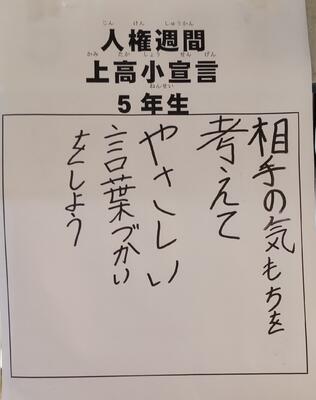 じん けん しゅうかん
人権週間
かみ たか しょう せん げん
上高小宣言
ねんせい
5年生
相手の気もちを
考えて
やさしい
言葉づかい
をしよう